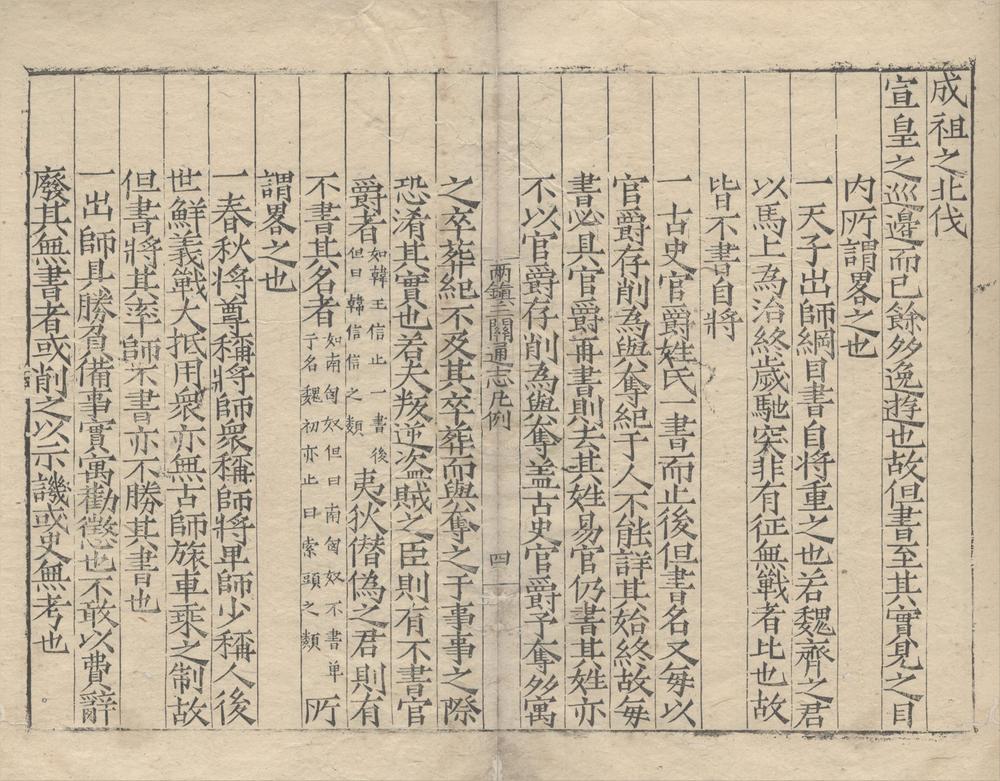 成祖之北伐
宣皇之巡邊而已餘多逸㳺也故但書至其實見之目
内所謂畧之也
一天子出師綱目書自将重之也若魏齊之君
以馬上為治終歲馳突非有征無戰者比也故
皆不書自將
一古史官爵姓氏一書而止後但書名又每以
官爵存削為與奪紀于人不能詳其始終故每
書必具官爵再書則去其姓易官仍書其姓亦
不以官爵存削為與奪盖古史官爵予奪多寓
兩鎮三關通志凡例
四
之卒葬紀不及其卒葬而與奪之于事事之際
恐淆其實也若夫叛逆盜賊之臣則有不書官
爵者如韓王信止一書後但曰韓信信之類夷狄僣偽之君則有
不書其名者如南匈奴但曰南匈奴不書单于名魏初亦止曰索頭之類所
謂畧之也
一春秋將尊稱將師衆稱師將卑師少稱人後
世鮮義戰大抵用衆亦無古師旅車乘之制故
但書將其率師不書亦不勝其書也
一出師具勝負備事實寓勸懲也不敢以費辭
廢其無書者或削之以示譏或史無考也